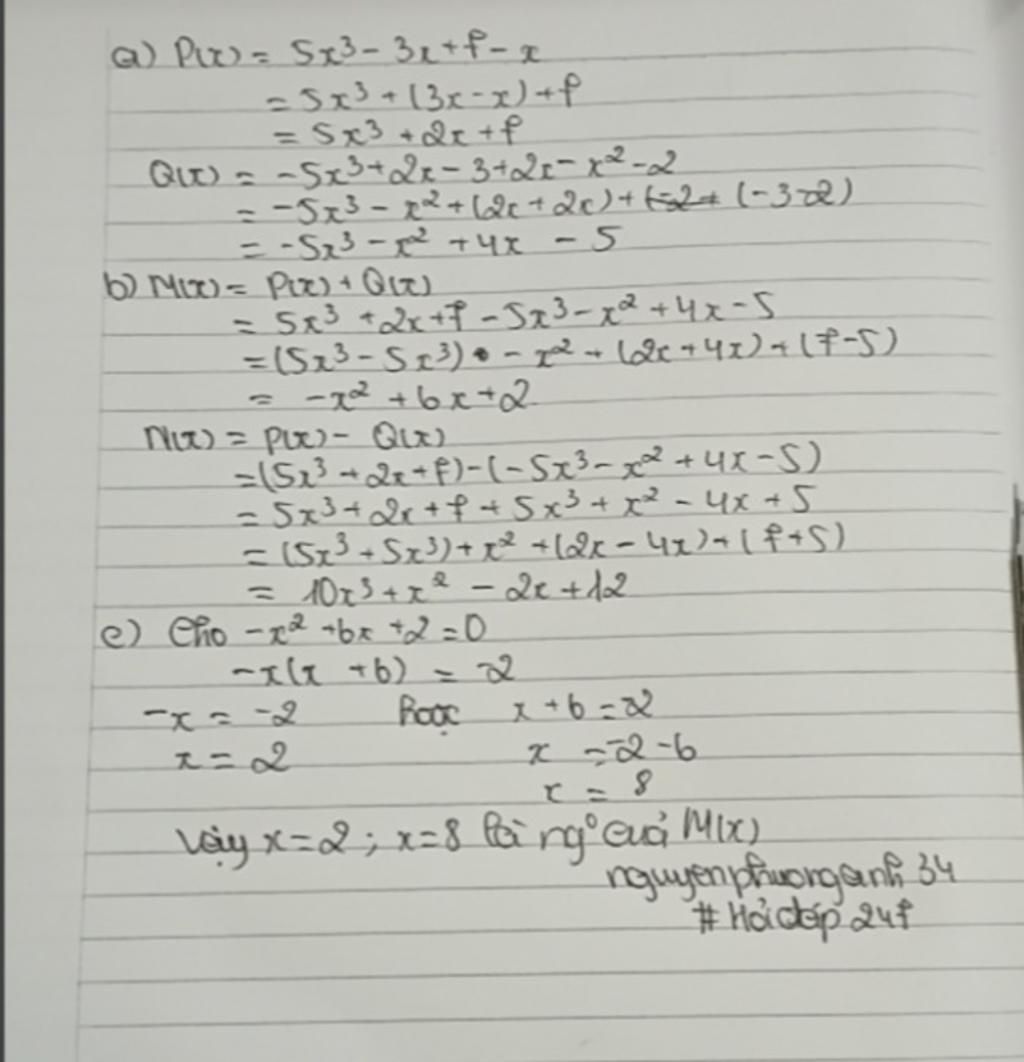 a) P(x) = 5x³ - 3x + 7 - x
= 5x³ + (3x - x) + 7
= 5x³ + 2x + 7
Q(x) = -5x³ + 2x - 3 + 2x - x² - 2
= -5x³ - x² + (2x + 2x) + (-2+ (-3-2)
= -5x³ - x² + 4x - 5
b) M(x) = P(x) + Q(x)
= 5x³ + 2x + 7 - 5x³ - x² + 4x - 5
= (5x³ - 5x³) - x² + (2x + 4x) + (7 - 5)
= -x² + 6x + 2
N(x) = P(x) - Q(x)
= (5x³ + 2x + 7) - (-5x³ - x² + 4x - 5)
= 5x³ + 2x + 7 + 5x³ + x² - 4x + 5
= (5x³ + 5x³) + x² + (2x - 4x) + (7 + 5)
= 10x³ + x² - 2x + 12
c) Cho -x² + 6x + 2 = 0
-x(x + 6) = -2
-x = -2 hoặc x + 6 = -2
x = 2 x = -2 - 6
x = 8
Vậy x = 2 ; x = 8 là ng° của M(x)
nguyenphuonganh 34
# Hỏi đáp 247